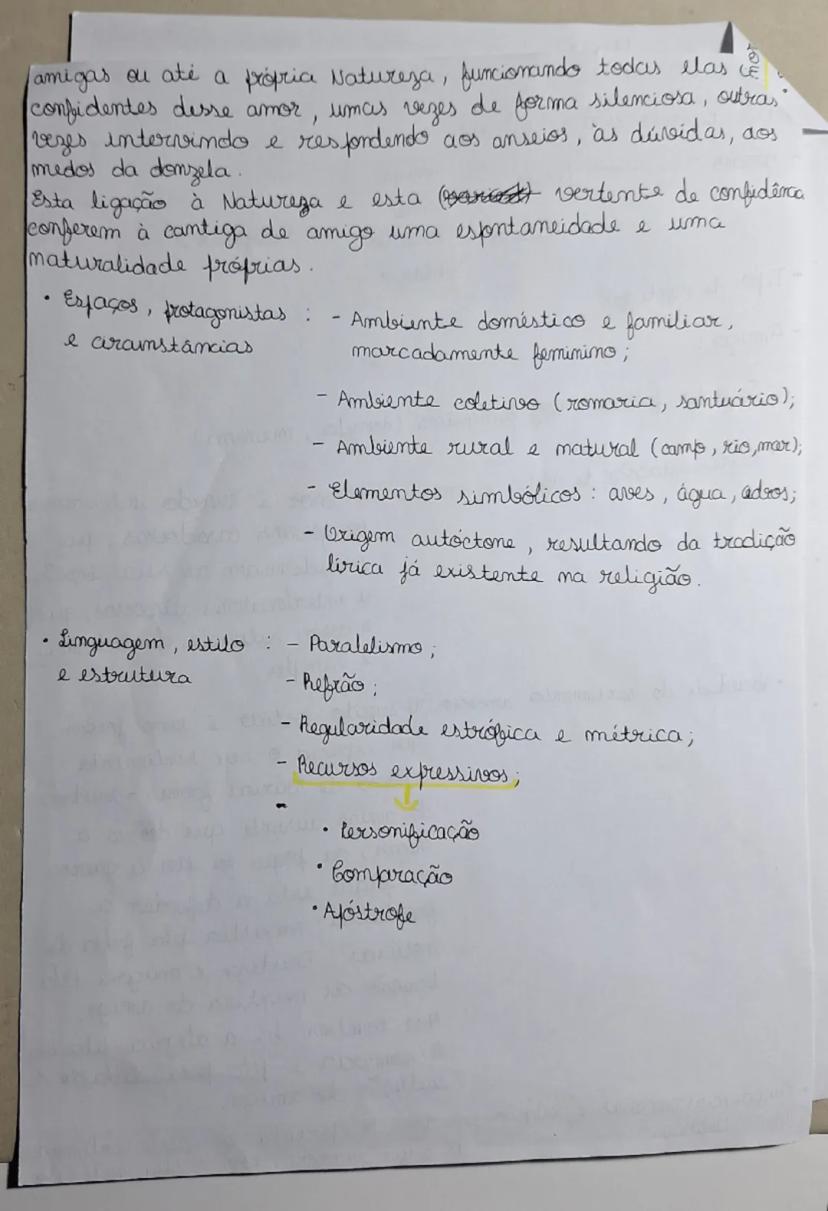 amigas ou até a própria Natureza, funcionando todas elas
confidentes desse amor, umas vezes de forma silenciosa, outras
vezes intervindo e respondendo aos anseios, às dúvidas, aos
medos da donzela.
Esta ligação à Natureza e esta vertente de confidência
conferem à cantiga de amigo uma espontaneidade e uma
naturalidade próprias.
• Espaços, protagonistas : - Ambiente doméstico e familiar,
e circunstâncias marcadamente feminino;
- Ambiente coletivo (romaria, santuário);
- Ambiente rural e natural (campo, rio, mar);
- Elementos simbólicos: aves, água, cedros;
- Origem autóctone, resultando da tradição
lírica já existente na religião.
• Linguagem, estilo : - Paralelismo;
e estrutura - Refrão;
- Regularidade estrófica e métrica;
- Recursos expressivos;
-
• Personificação
• Comparação
• Apóstrofe